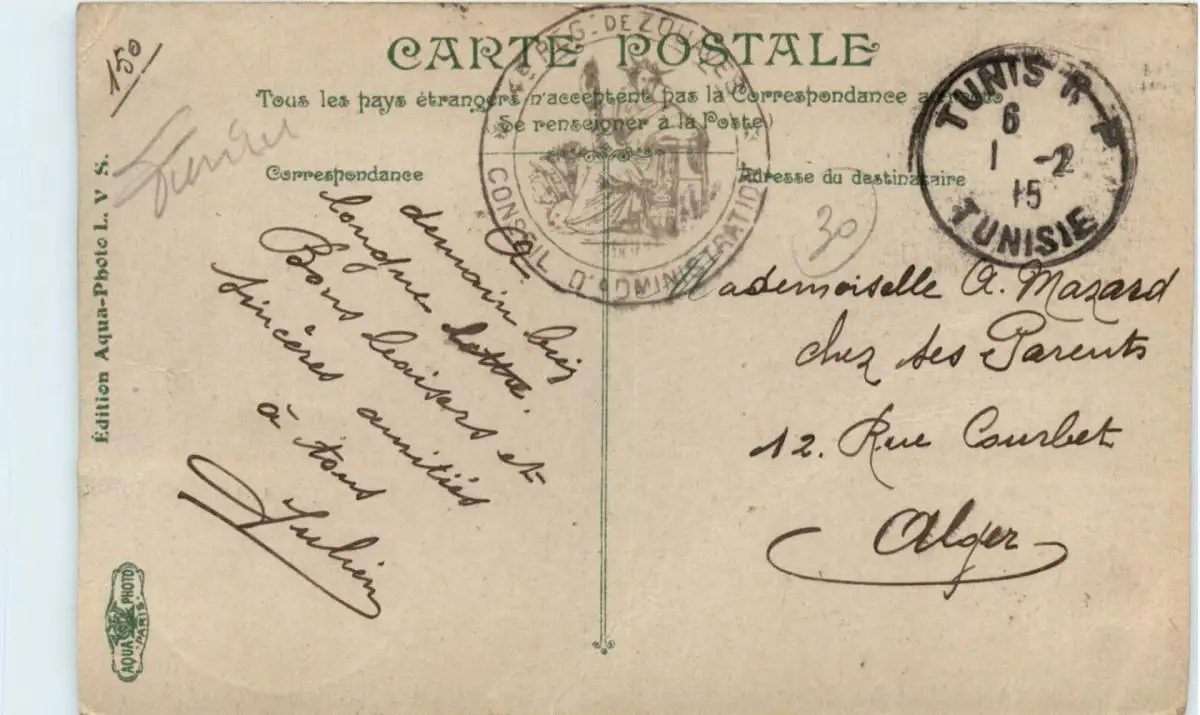 150
CARTE POSTALE
Tous les pays étrangers n'acceptent pas la Correspondance au
Se renseigner à la Poste)
Correspondance
Adresse du destinataire
4e RÉG. DE ZOUAVES
CONSEIL D'ADMINISTRATION
TUNIS R P
6
1 -2
15
TUNISIE
30
Tunisie
A
demain bien
longue lettre.
Bons baisers et
sincères amitiés
à tous
Julien
Mademoiselle A. Mazard
chez ses Parents
12. Rue Courbet
Alger
Édition Aqua-Photo L. V S.
AQUA PHOTO
PARIS